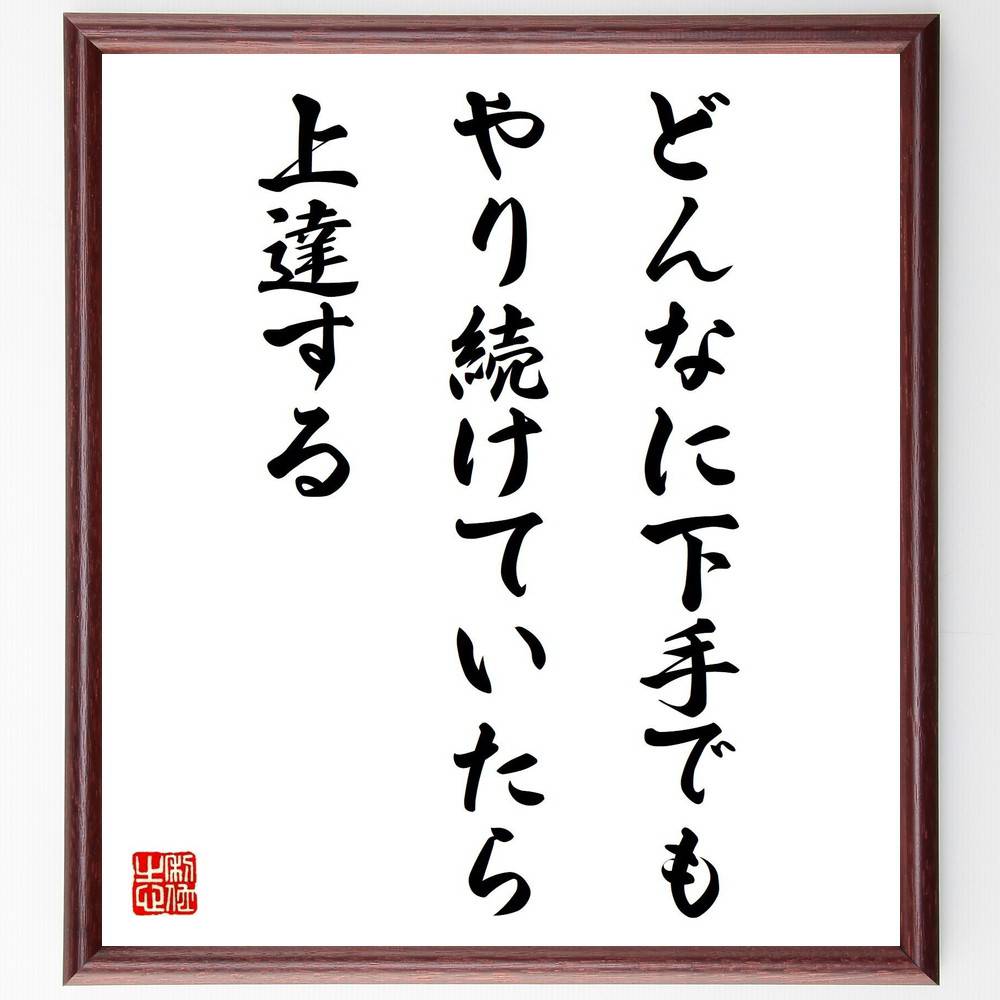 どんなに下手でも
やり続けていたら
上達する